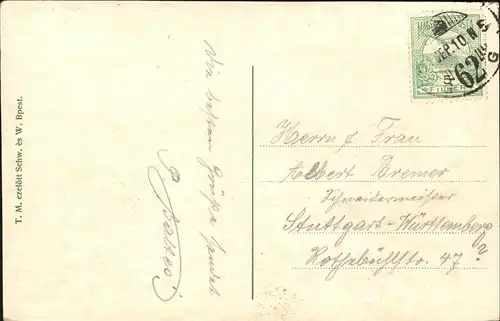 T. M. ezelőtt Schw. és W. Bpest.
Die besten Grüße sendet
Herrn & Frau
Albert Bremer
Schneidermeister
Stuttgart-Württemberg
Rothebühlstr. 47.
SEP. 10
62
FILLÉR